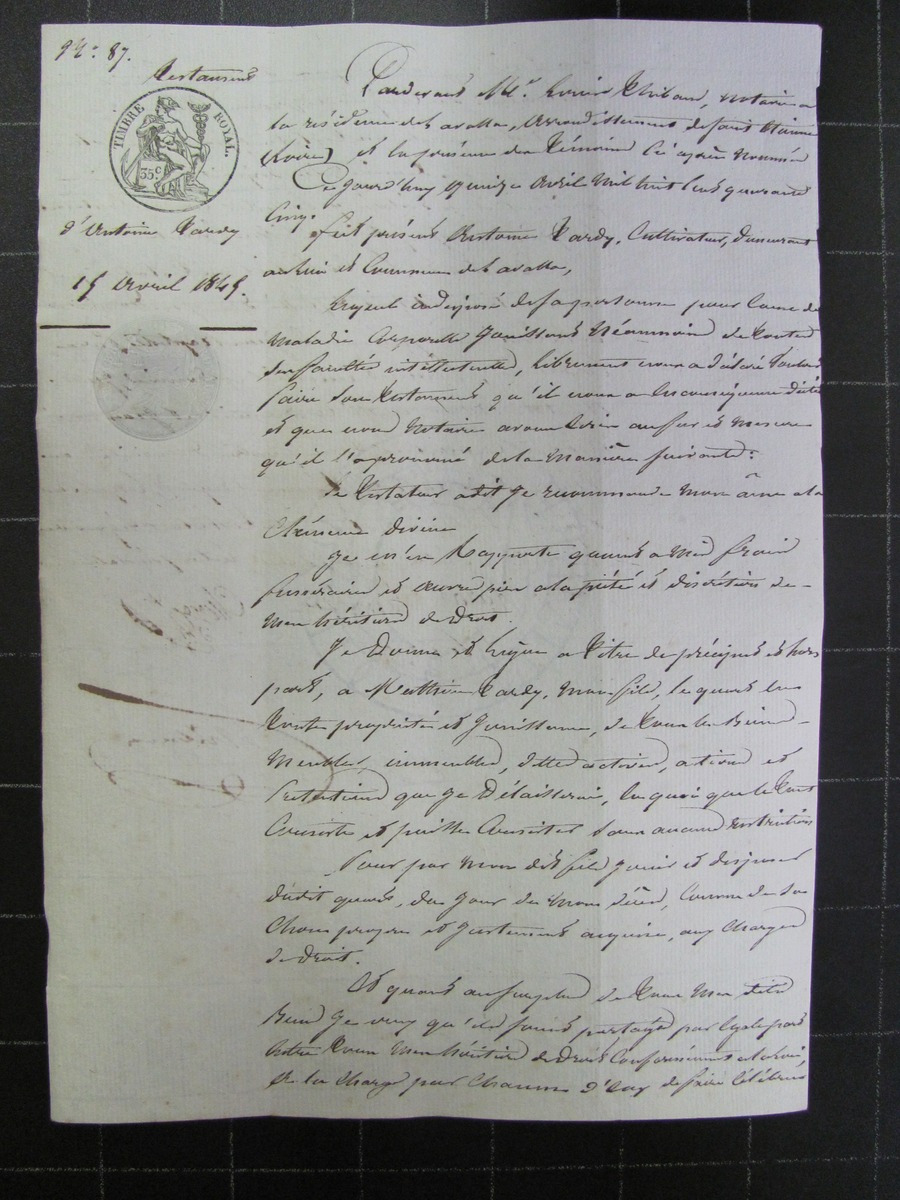 N.° 87.
Testament
TIMBRE ROYAL.
35 c.
d'Antoine Tardy
15 avril 1845.
Pardevant M.e Thibaud, notaire a
la résidence de Lavalla, arrondissement de saint Etienne
(Loire) et en la présence des témoins ci après nommés
Ce jourd'huy quinze avril mil huit cent quarante
Cinq.
fut présent Antoine Tardy, Cultivateur, demeurant
au lieu et Commune de Lavalla,
Lequel indisposé de sa personne pour cause de
maladie Corporelle Jouissant Néanmoins de toutes
ses facultés intellectuelles, librement nous a déclaré vouloir
faire son testament qu'il nous a en conséquence dicté
et que nous Notaire avons écrit au fur et mesure
qu'il l'a prononcé de la manière suivante:
Le testateur a dit Je recommande mon âme a la
Clémence divine
Je m'en rapporte quant a mes frais
funéraires et œuvres pies a la piété et discrétion de
mes héritiers de droit.
Je Donne et lègue a titre de préciput et hors
part, a Mathieu Tardy, mon fils, le quart en
toute propriété et Jouissance, de tous les Biens
Meubles, immeubles, dettes actives, actions et
Prétentions que Je Délaisserai, en quoi que le tout
Consiste et puisse Consister sans aucune restriction
Pour par mon dit fils Jouir et disposer
dudit quart, du Jour de mon décès, Comme de sa
Chose propre et Justement acquise, aux charges
de droit.
Et quant au surplus de tous mes dits
Biens Je veux qu'ils soient partagés par égale part
entre tous mes héritiers de droit Conformément a la loi,
a la charge par chacun d'eux de faire Célébrer